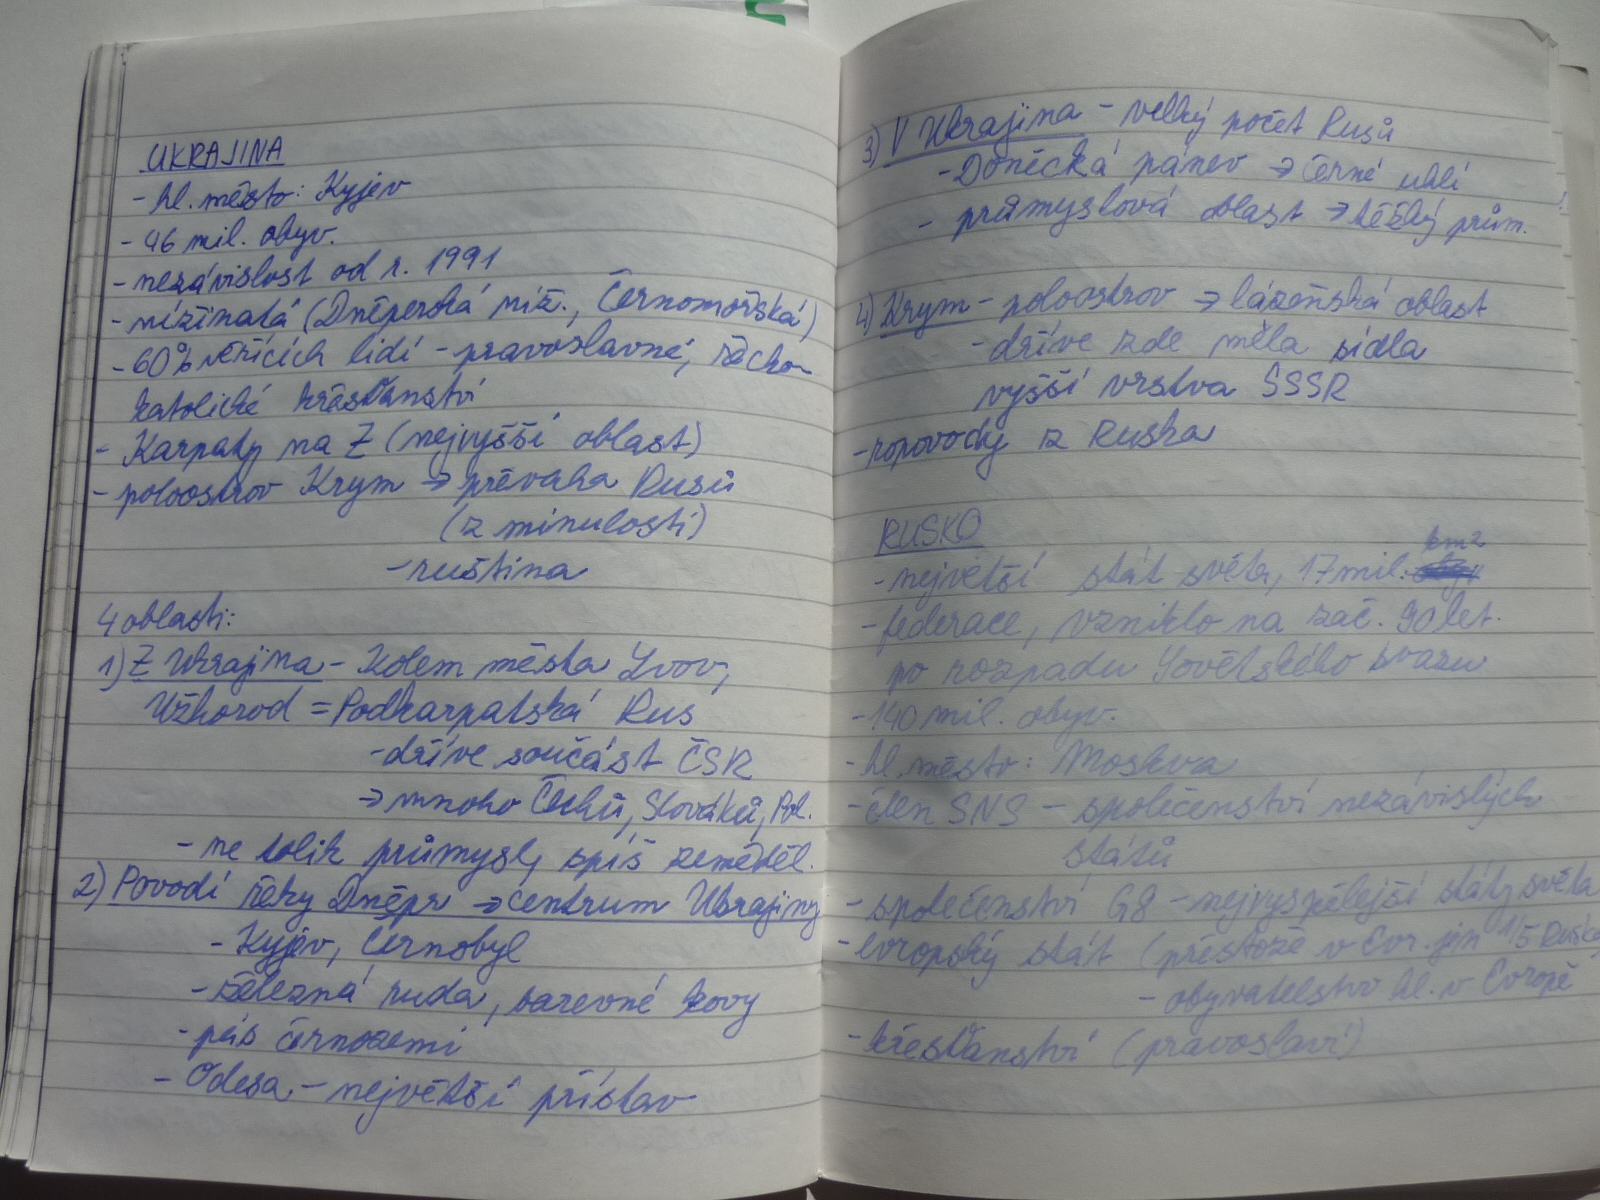 UKRAJINA
- hl. město: Kyjev
- 46 mil. obyv.
- nezávislost od r. 1991
- nížinatá (Dněperská níž., Černomořská)
- 60% věřících lidí - pravoslavné, řecko-
katolické křesťanství
- Karpaty na Z (nejvyšší oblast)
- poloostrov Krym → převaha Rusů
(z minulosti)
- ruština
4 oblasti:
1) Z Ukrajina - Kolem města Lvov,
Užhorod = Podkarpatská Rus
- dříve součást ČSR
→ mnoho Čechů, Slováků, Pol.
- ne tolik průmysl, spíš zeměděl.
2) Povodí řeky Dněpr → centrum Ukrajiny
- Kyjev, Černobyl
- železná ruda, barevné kovy
- pás černozemí
- Odesa - největší přístav
3) V Ukrajina - velký počet Rusů
- Doněcká pánev → černé uhlí
- průmyslová oblast → těžký prům.
4) Krym - poloostrov → lázeňská oblast
- dříve zde měla sídla
vyšší vrstva SSSR
- ropovody z Ruska
RUSKO
- největší stát světa, 17 mil. km²
- federace, vzniklo na zač. 90 let.
po rozpadu Sovětského svazu
- 140 mil. obyv.
- hl. město: Moskva
- člen SNS - společenství nezávislých
států
- společenství G8 - nejvyspělejší státy světa
- Evropský stát (přestože v Evr. jen 1/5 Ruska
- obyvatelstvo hl. v Evropě
- křesťanství (pravoslaví)